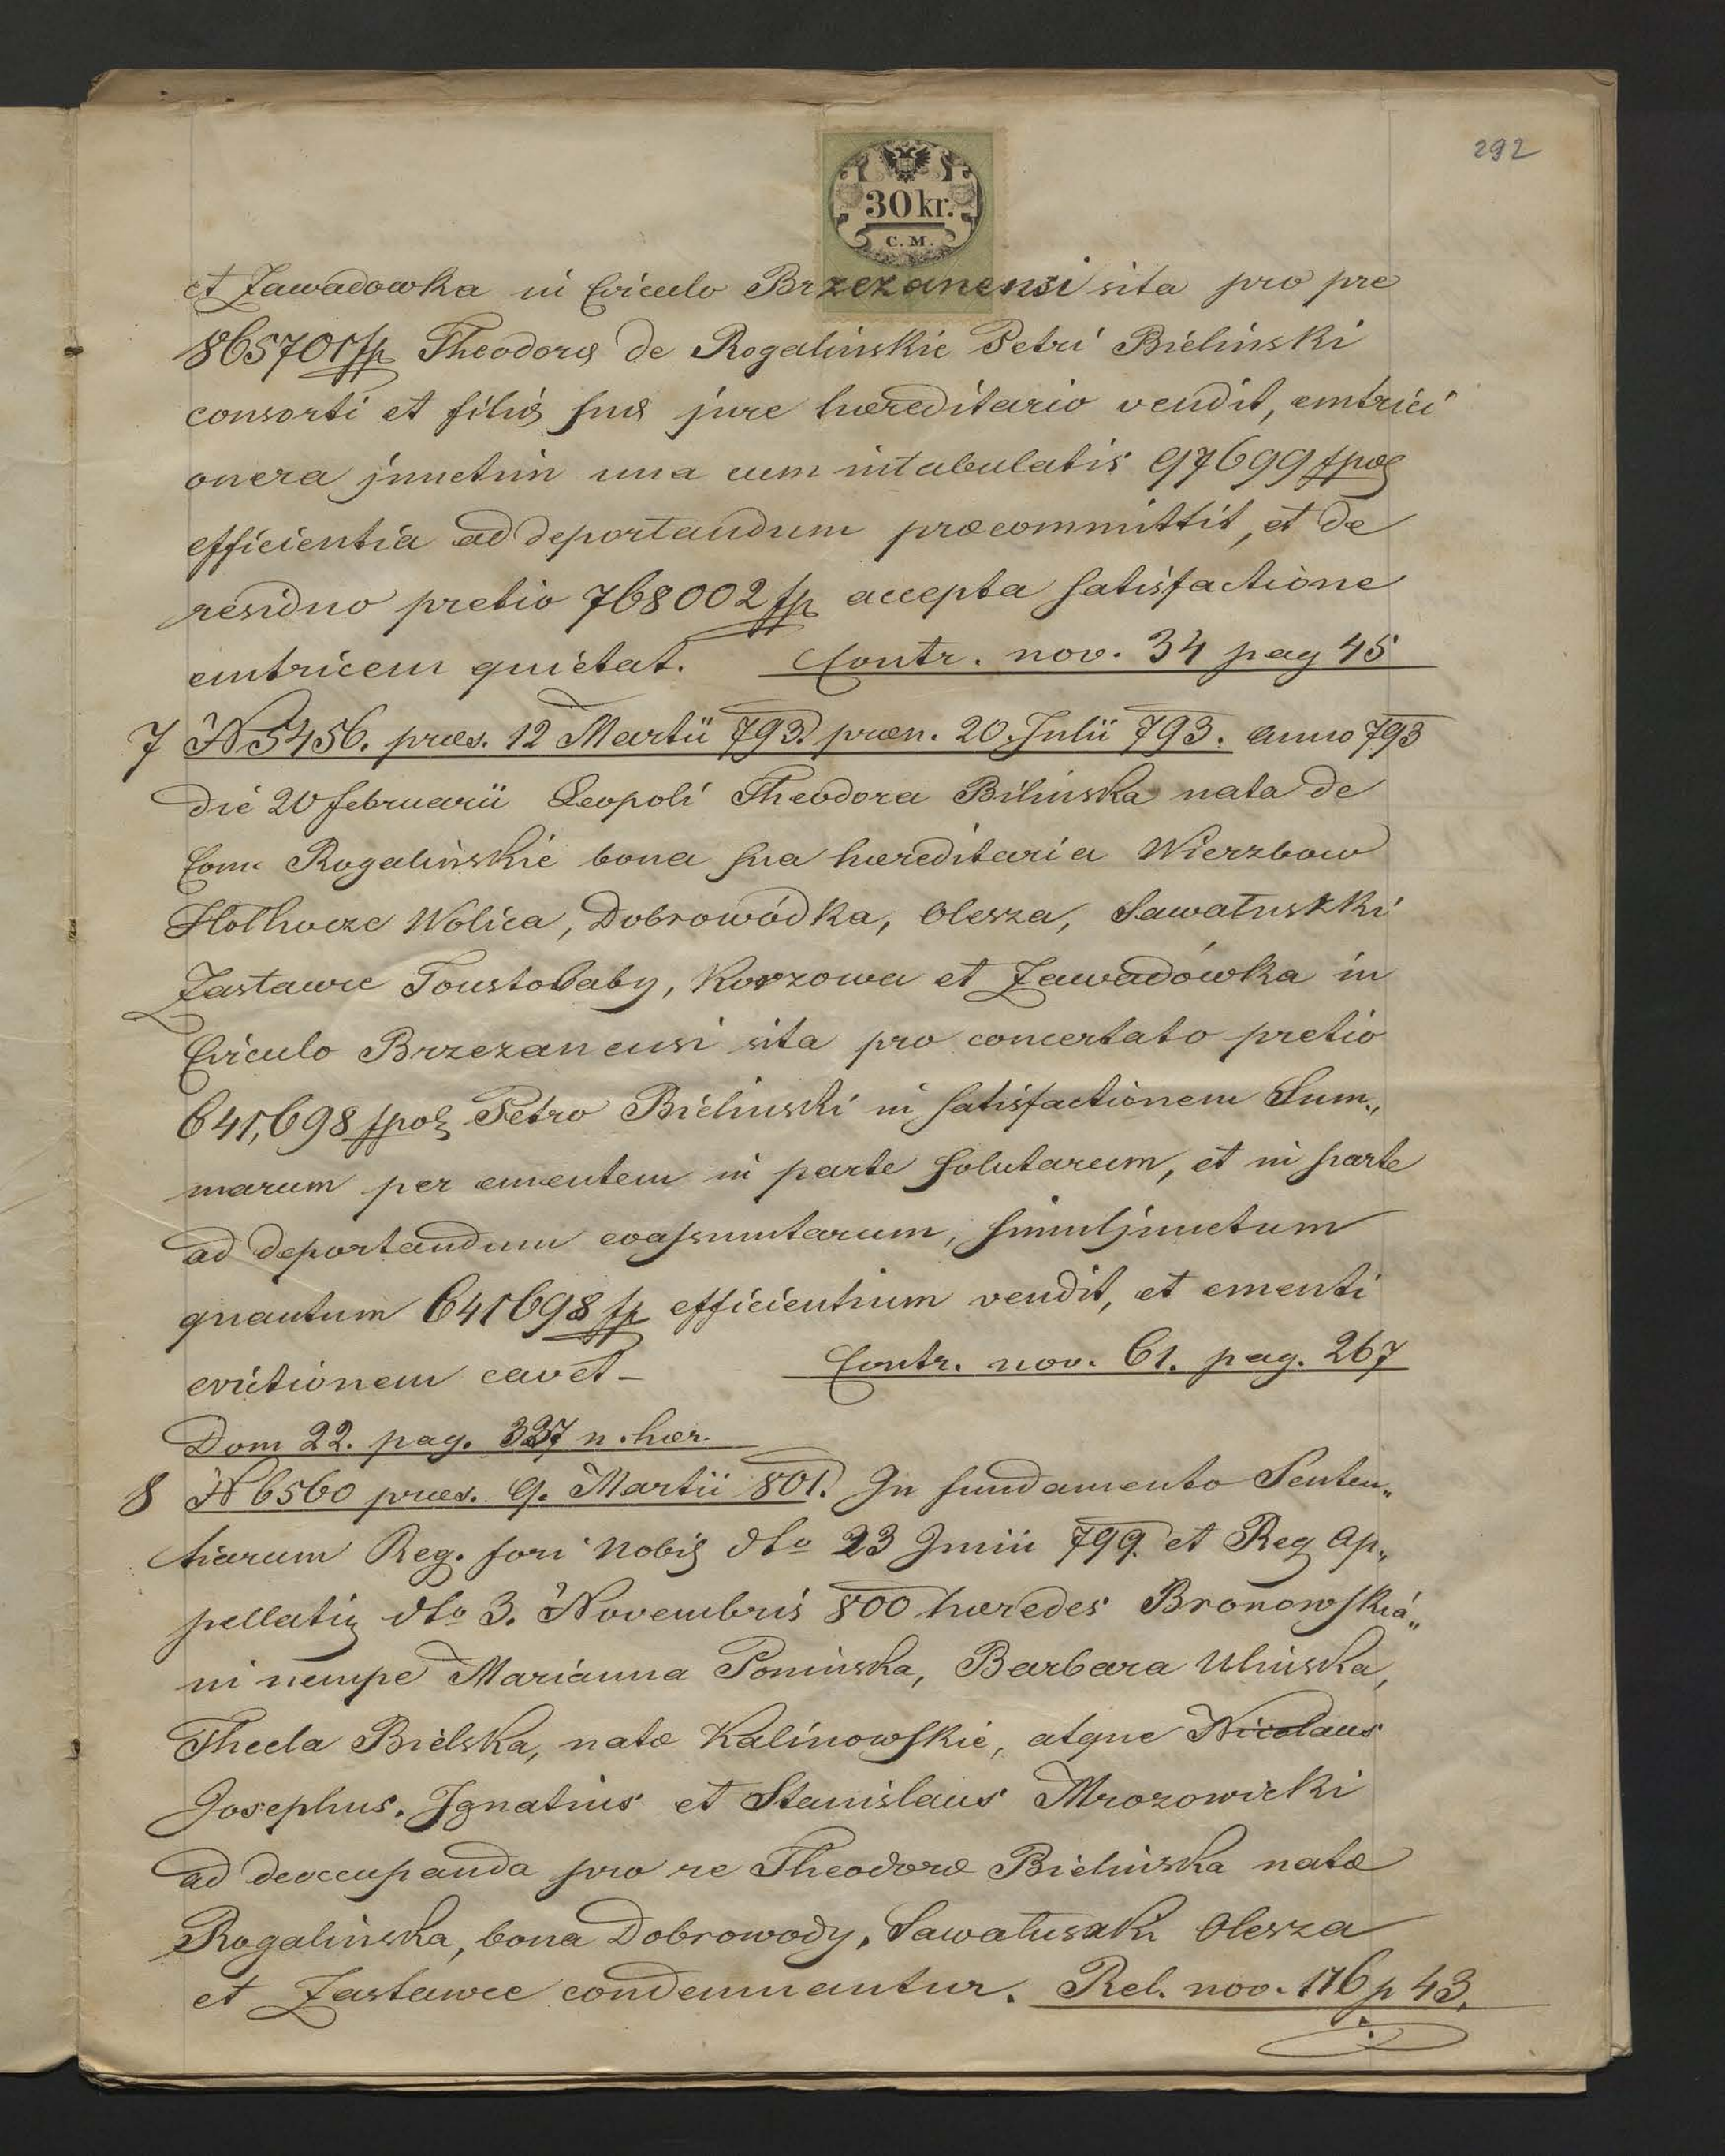 292
30 kr.
C. M.
et Zawadowka in Circulo Brzezanensi sita pro pre
865701 fp Theodoræ de Rogalinskie Petri Bielinski
consorti et filiæ suæ jure hæreditario vendit, emtrici
onera junctim una cum intabulatis 97699 fpol
efficientia ad deportandum præcommittit, et de
residuo pretio 768002 fp accepta satisfactione
emtricem quietat. Contr. nov. 34 pag 45
7 N 5456. præs. 12 Martii 793. præn. 20. Julii 793. anno 793
die 20 februarii Leopoli Theodora Bilinska nata de
Com. Rogalinskie bona sua hæreditaria Wierzbow
Hołhocze Wolica, Dobrowódka, Olesza, Sawałuszki
Zastawce Toustobaby, Korzowa et Zawadówka in
Circulo Brzezanensi sita pro concertato pretio
641,698 fpol Petro Bielinski in satisfactionem Sum„
marum per ementem in parte solutarum, et in parte
ad deportandum evassumtarum, simul junctum
quantum 641698 fp efficientium vendit, et ementi
evictionem cavet – Contr. nov. 61. pag. 267
Dom 22. pag. 337 n. hær.
8 N 6560 præs. 9. Martii 801. In fundamento Senten„
tiarum Reg. fori Nobil dto 23 Junii 799. et Reg Ap„
pellatis dto 3. Novembris 800 hæredes Bronowskia„
ni nempe Marianna Poninska, Barbara Ulinska,
Thecla Bielska, natæ Kalinowskie, atque Nicolaus
Josephus. Ignatius et Stanislaus Mrozowicki
ad deoccupanda pro re Theodoræ Bielinska natæ
Rogalinska, bona Dobrowody, Sawałuski Olesza
et Zastawce condemnantur. Rel. nov. 176 p 43.